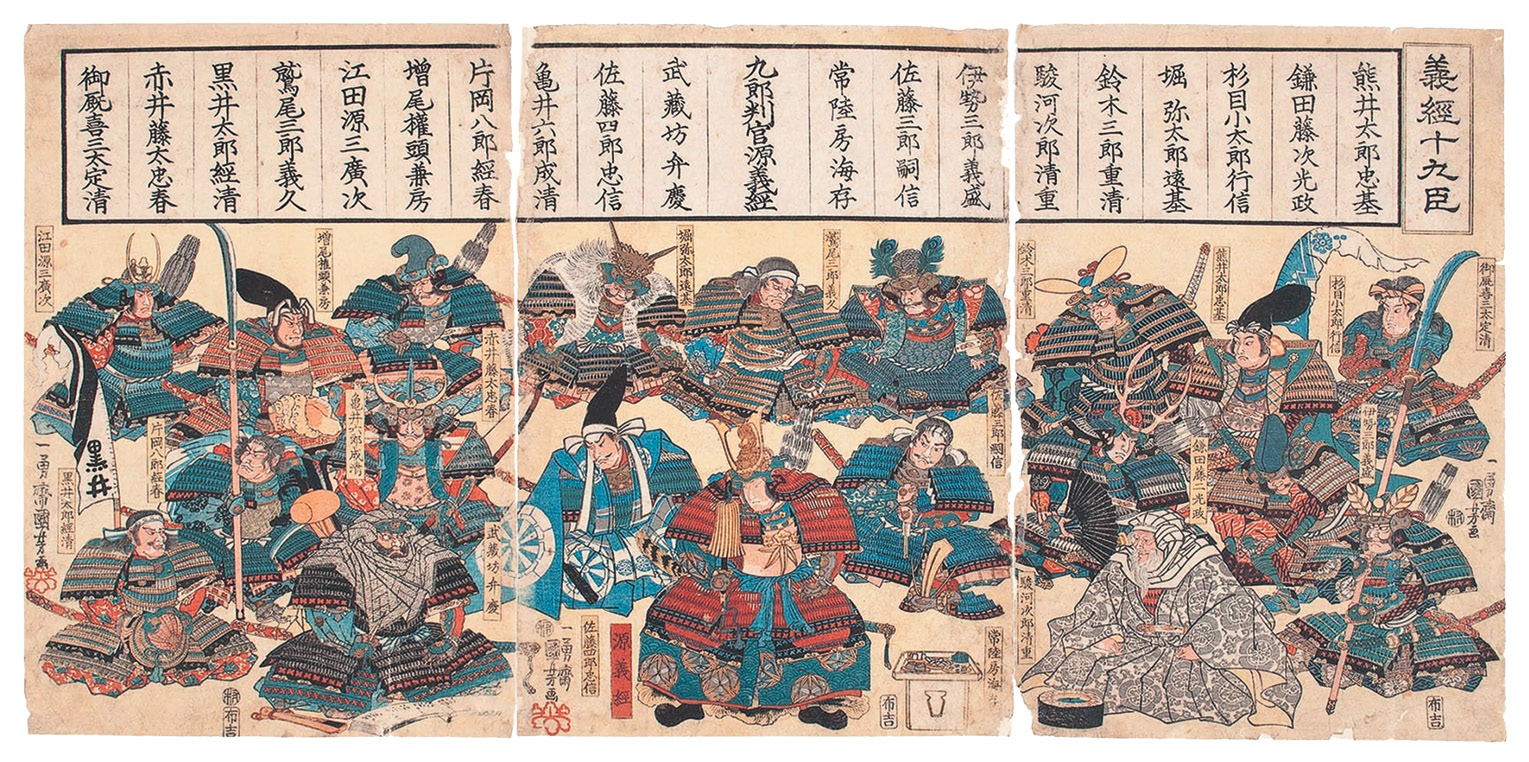 義經十九臣
熊井太郎忠基
鎌田藤次光政
杉目小太郎行信
堀弥太郎遠基
鈴木三郎重清
駿河次郎清重
伊勢三郎義盛
佐藤三郎嗣信
常陸房海存
九郎判官源義經
武藏坊弁慶
佐藤四郎忠信
亀井六郎成清
片岡八郎經春
増尾權頭兼房
江田源三廣次
鷲尾三郎義久
黒井太郎經清
赤井藤太忠春
御厩喜三太定清
御厩喜三太定清
杉目小太郎行信
熊井太郎忠基
鈴木三郎重清
伊勢三郎義盛
鎌田藤二光政
駿河次郎清重
一勇齋
國芳画
布吉
鷲尾三郎義久
堀弥太郎遠基
佐藤三郎嗣信
常陸房海
源義經
佐藤四郎忠信
一勇齋
國芳画
布吉
増尾權頭兼房
江田源三廣次
赤井藤太忠春
亀井六郎成清
片岡八郎經春
黒井
黒井太郎經清
武藏坊弁慶
一勇齋國芳画
布吉